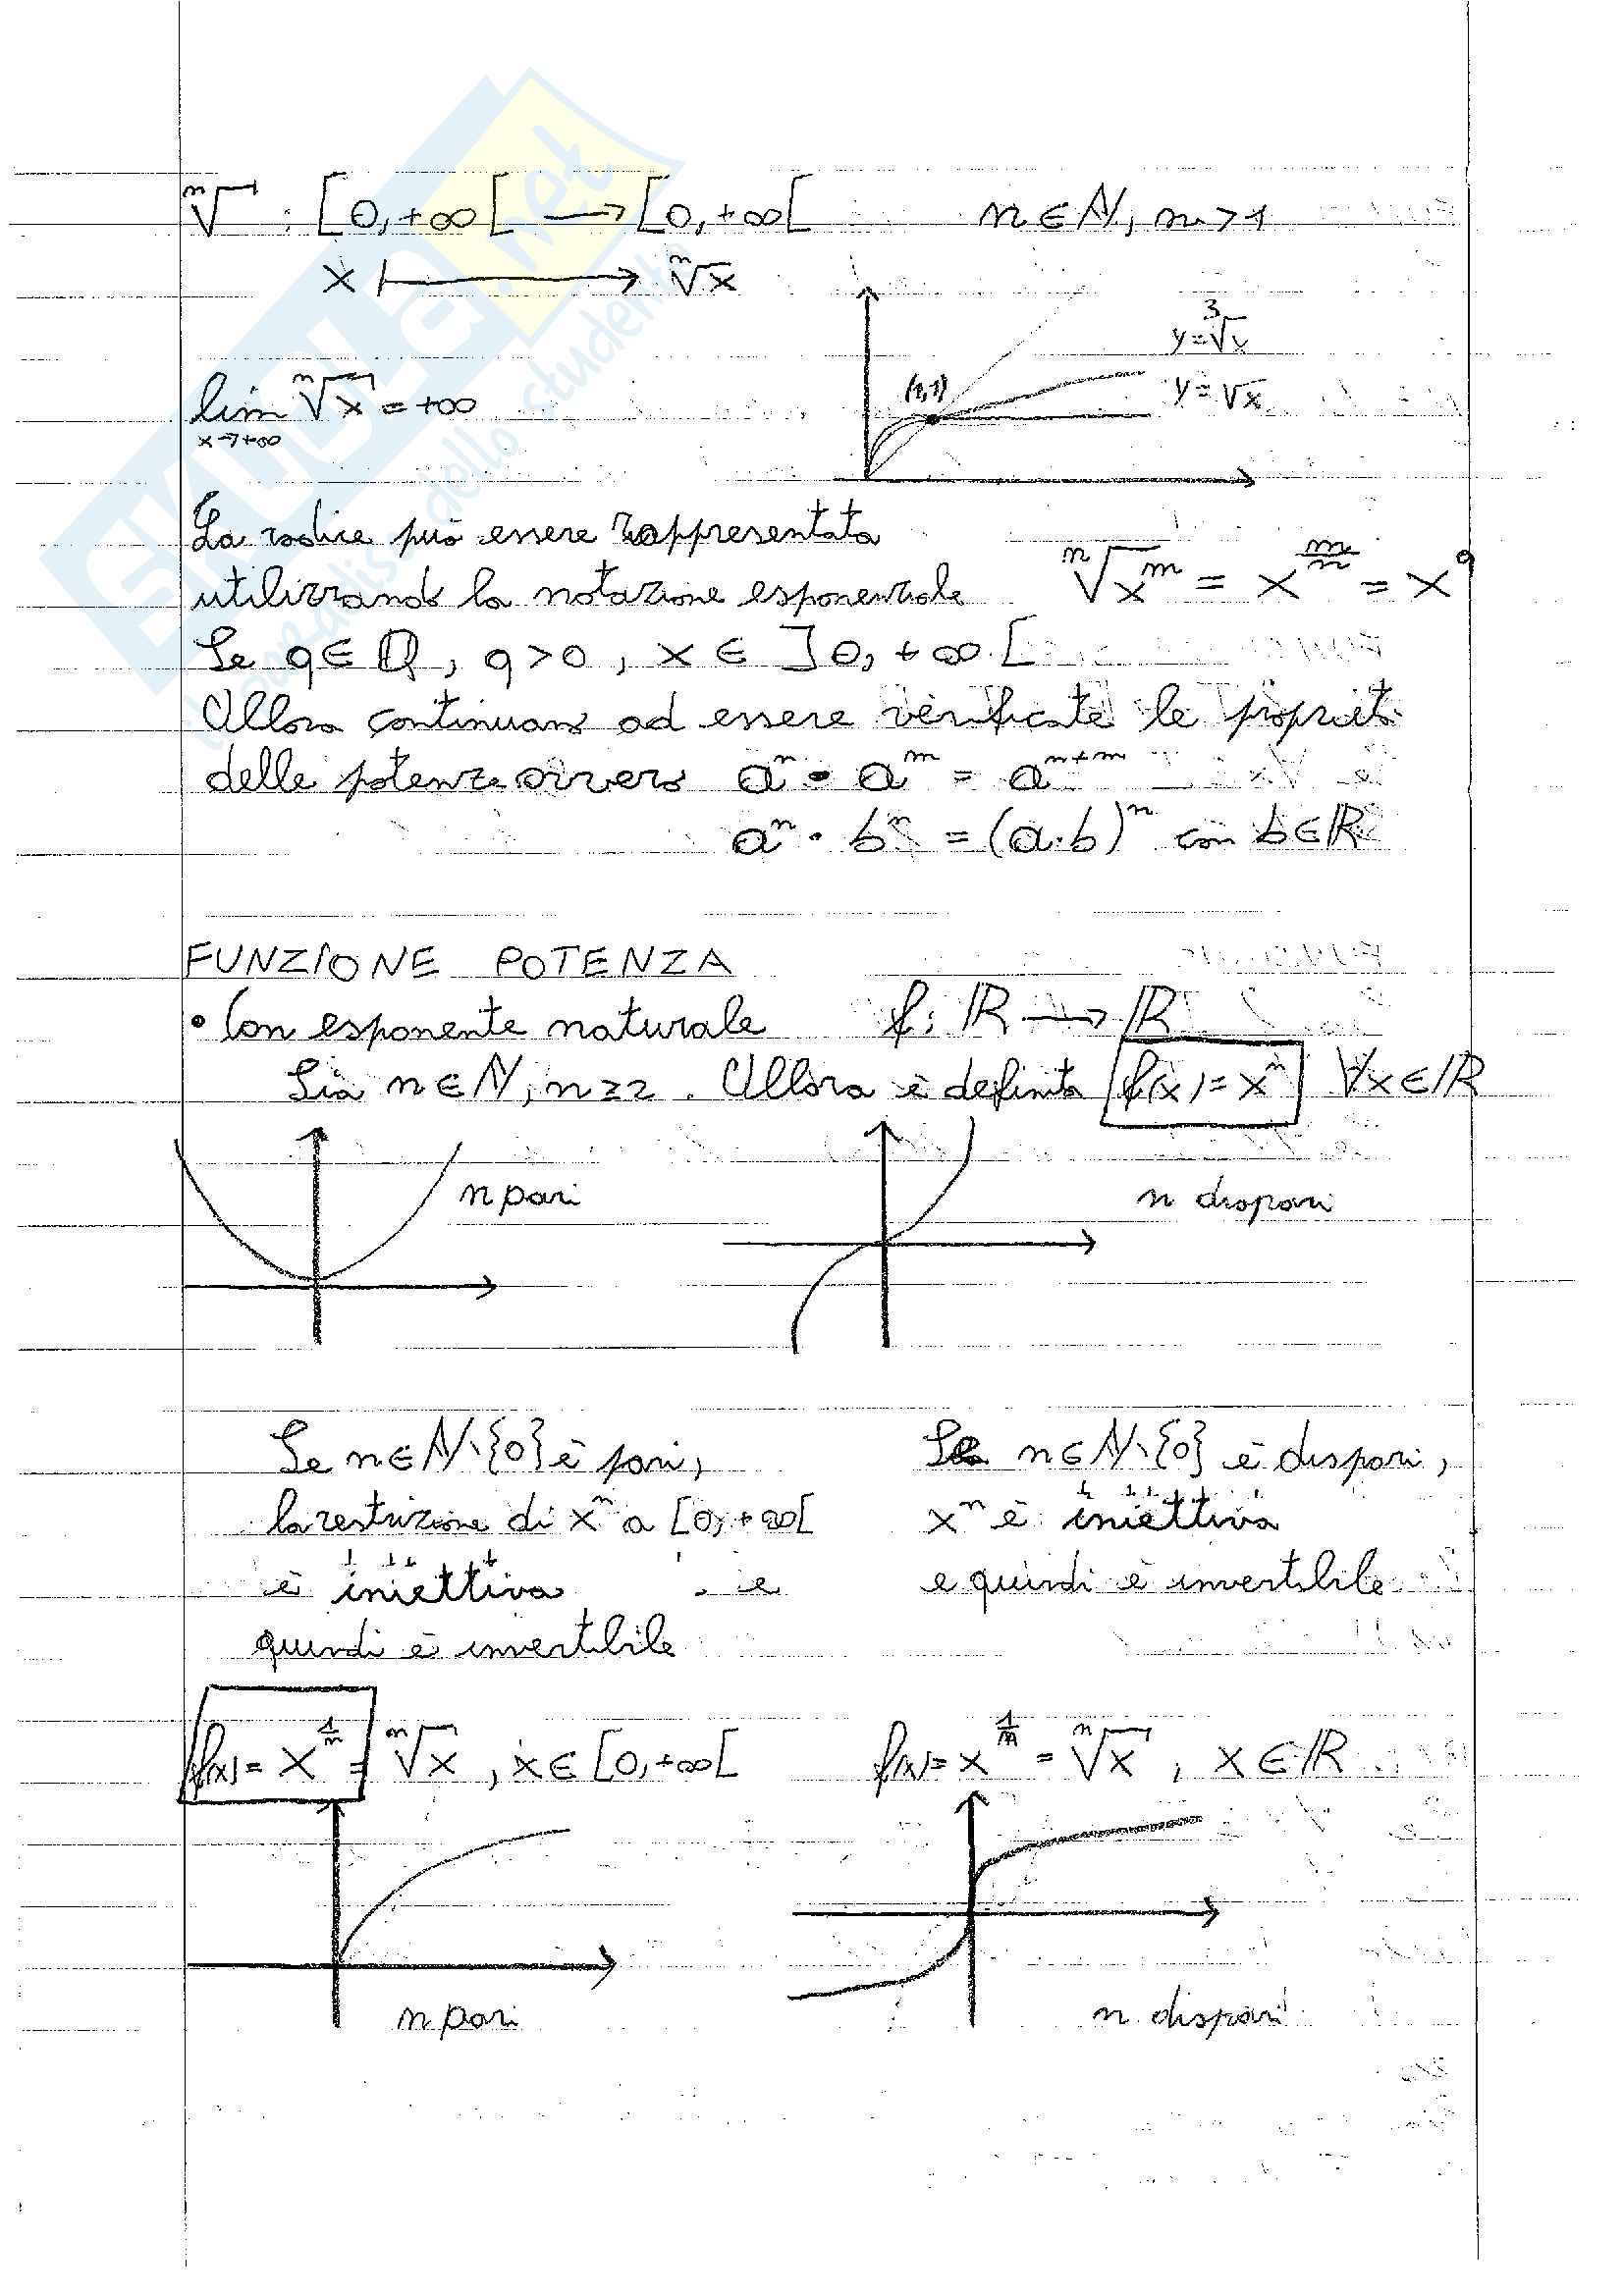 ⁿ√ : [0,+∞[ → [0,+∞[ n∈ℕ, n>1
x ↦ ⁿ√x
y=³√x
lim ⁿ√x = +∞
x→+∞
(1,1)
y=√x
La radice può essere rappresentata
utilizzando la notazione esponenziale ⁿ√x^m = x^(m/n) = x^q
Se q∈ℚ, q>0, x∈]0,+∞[
Allora continuano ad essere verificate le proprietà
delle potenze ovvero a^n · a^m = a^(n+m)
a^n · b^n = (a·b)^n con b∈ℝ
FUNZIONE POTENZA
• Con esponente naturale f: ℝ → ℝ
Sia n∈ℕ, n≥2. Allora è definita f(x)=x^n ∀x∈ℝ
n pari
n dispari
Se n∈ℕ\{0} è pari,
la restrizione di x^n a [0,+∞[
è iniettiva e
quindi è invertibile
Se n∈ℕ\{0} è dispari,
x^n è iniettiva
e quindi è invertibile
f(x)=x^(1/n) = ⁿ√x, x∈[0,+∞[
f(x)=x^(1/n) = ⁿ√x, x∈ℝ
n pari
n dispari
SKUOLA.net
dello studente